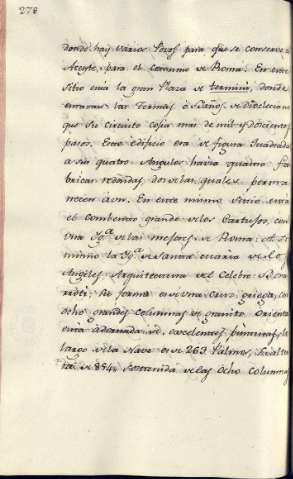 278
donde hay varios Pozos para que se conserve el
Aceyte, para el comun de Roma. En este
sitio está la gran Plaza de termini, donde
estavan las Termas ó Baños de Diocleciano
que su circuito cojia mas de mil y doscientos
pasos. Este edificio era de figura quadrada
a sus quatro Angulos havia quatro fa-
bricas redondas dos de las quales perma-
necen aun. En este mismo sitio está
el combento grande de los Cartujos, con
una Ygª de las mejores de Roma. Asi
mismo la Ygª de Santa maria de los
Angeles Arquitectura del Celebre
Su forma es de una cruz griega, con
ocho grandes columnas de granito Oriental
está adornada de excelentes pinturas, lo
largo de la Nave es de 263 Palmos,
de 854 sostenida de las ocho columnas